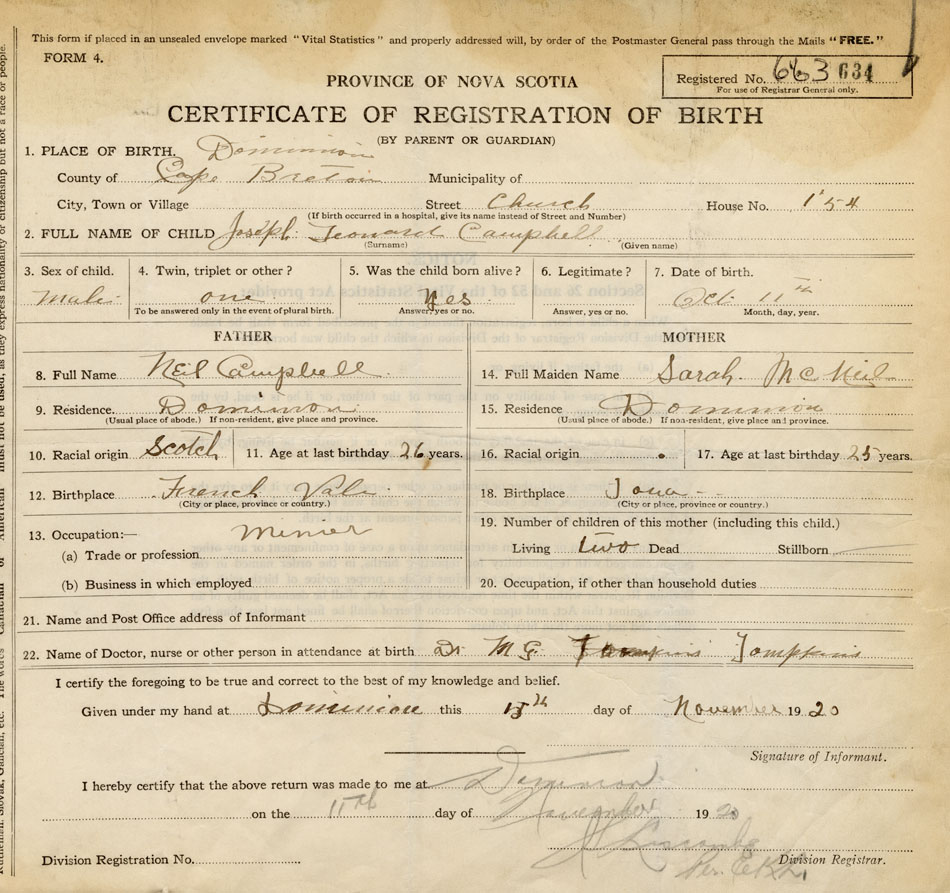 This form if placed in an unsealed envelope marked "Vital Statistics" and properly addressed will, by order of the Postmaster General pass through the Mails "FREE."
FORM 4.
Registered No. 663 634
For use of Registrar General only.
PROVINCE OF NOVA SCOTIA
CERTIFICATE OF REGISTRATION OF BIRTH
(BY PARENT OR GUARDIAN)
1. PLACE OF BIRTH. Dominion
County of Cape Breton Municipality of
City, Town or Village Street Church House No. 154
(If birth occurred in a hospital, give its name instead of Street and Number)
2. FULL NAME OF CHILD Joseph Leonard Campbell
(Surname) (Given name)
3. Sex of child. 4. Twin, triplet or other? 5. Was the child born alive? 6. Legitimate? 7. Date of birth.
Male one Yes Oct. 11th
To be answered only in the event of plural birth. Answer, yes or no. Answer, yes or no. Month, day, year.
FATHER MOTHER
8. Full Name Neil Campbell 14. Full Maiden Name Sarah McNeil
9. Residence. Dominion 15. Residence Dominion
(Usual place of abode.) If non-resident, give place and province. (Usual place of abode.) If non-resident, give place and province.
10. Racial origin Scotch 11. Age at last birthday 26 years. 16. Racial origin 17. Age at last birthday 25 years.
12. Birthplace French Vale 18. Birthplace Iona
(City or place, province or country.) (City or place, province or country.)
13. Occupation:— Minier 19. Number of children of this mother (including this child.)
(a) Trade or profession Living two Dead Stillborn
(b) Business in which employed 20. Occupation, if other than household duties
21. Name and Post Office address of Informant
22. Name of Doctor, nurse or other person in attendance at birth Dr. M G. Tompkins
I certify the foregoing to be true and correct to the best of my knowledge and belief.
Given under my hand at Dominion this 15th day of November 1920
Signature of Informant.
I hereby certify that the above return was made to me at Dominion
on the 11th day of November 1920
Division Registration No. Division Registrar.